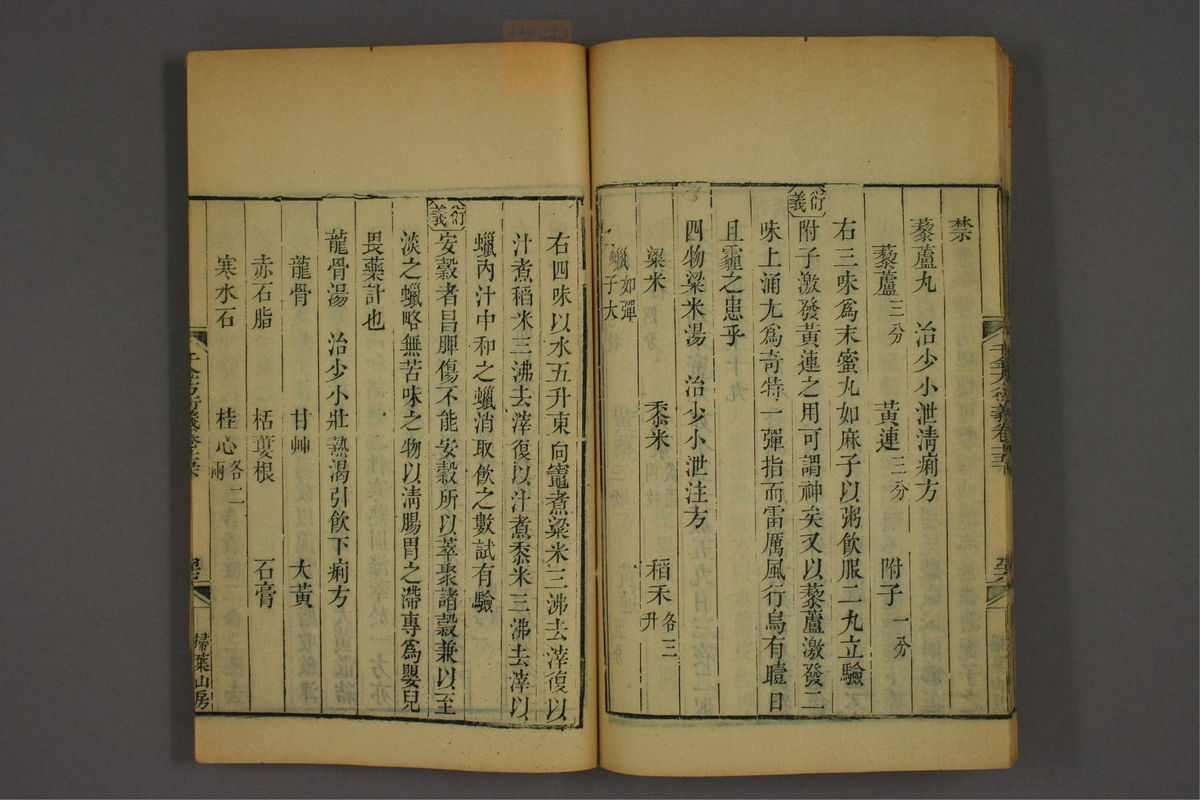 禁
藜蘆丸　治少小泄清痢方
藜蘆三分　黃連三分　附子一分
右三味爲末蜜丸如麻子以粥飲服二丸立驗
衍義
附子激發黃連之用可謂神矣又以藜蘆激發二
味上涌尤爲奇特一彈指而雷厲風行烏有曀日
且霾之患乎
四物粱米湯　治少小泄注方
粱米　黍米　稻禾各三升
蠟如彈子大
右四味以水五升東向竈煮粱米三沸去滓復以
汁煮稻米三沸去滓復以汁煮黍米三沸去滓以
蠟內汁中和之蠟消取飲之數試有驗
衍義
安穀者昌脾傷不能安穀所以萃聚諸穀兼以至
淡之蠟略無苦味之物以清腸胃之滯專爲嬰兒
畏藥計也
龍骨湯　治少小壯熱渴引飲下痢方
龍骨　甘艸　大黃
赤石脂　栝蔞根　石膏
寒水石　桂心各二兩
掃葉山房